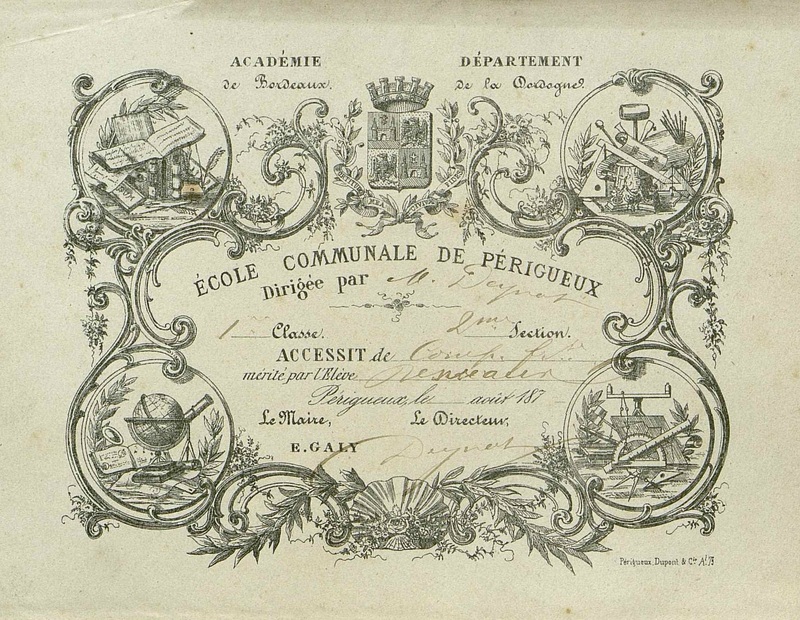 ACADÉMIE
de Bordeaux.
DÉPARTEMENT
de la Dordogne.
ÉCOLE COMMUNALE DE PÉRIGUEUX
Dirigée par M. Deynat
1re Classe. 2me Section.
ACCESSIT de Comp.
mérité par l'Elève
Périgueux, le août 187
Le Maire, Le Directeur,
E. GALY Deynat
Périgueux, Dupont, & Cie At. 73